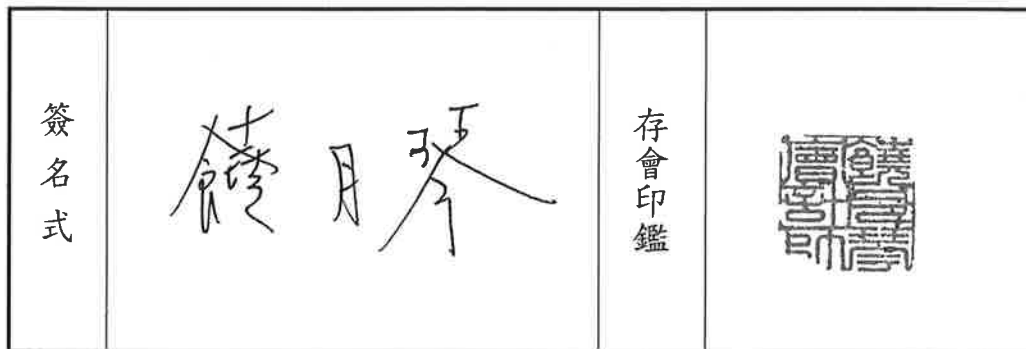 簽名式
饒月琴
存會印鑑
饒月琴會計師